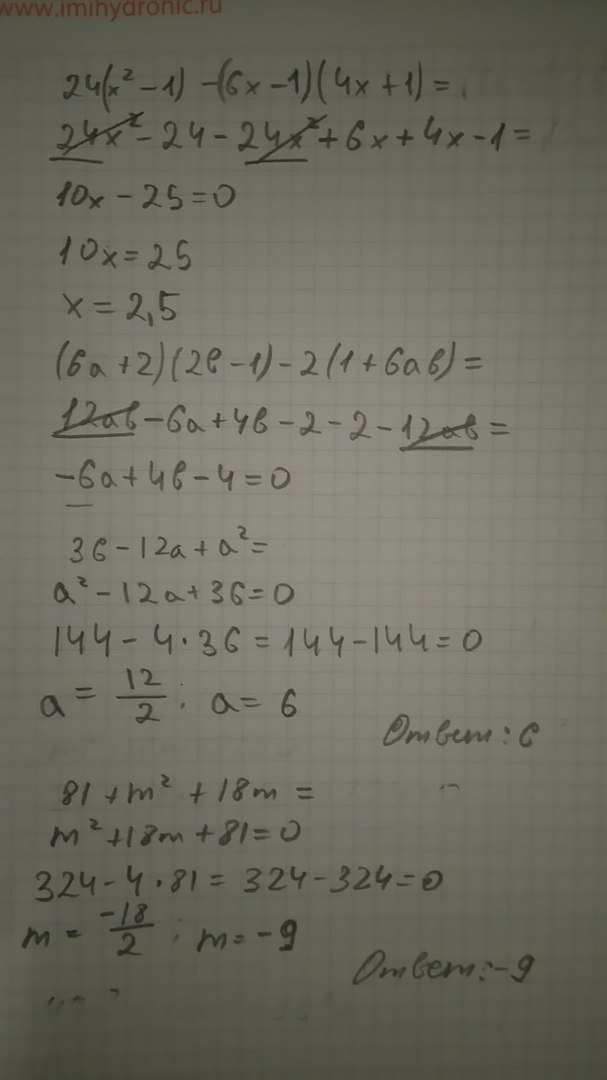 www.imihydronic.ru
24(x² - 1) - (6x - 1)(4x + 1) =
24x² - 24 - 24x² + 6x + 4x - 1 =
10x - 25 = 0
10x = 25
x = 2,5
(6a + 2)(2в - 1) - 2(1 + 6aв) =
12aв - 6a + 4в - 2 - 2 - 12aв =
-6a + 4в - 4 = 0
36 - 12a + a² =
a² - 12a + 36 = 0
144 - 4 · 36 = 144 - 144 = 0
a = 12/2 ; a = 6
Ответ: 6
81 + m² + 18m =
m² + 18m + 81 = 0
324 - 4 · 81 = 324 - 324 = 0
m = -18/2 ; m = -9
Ответ: -9